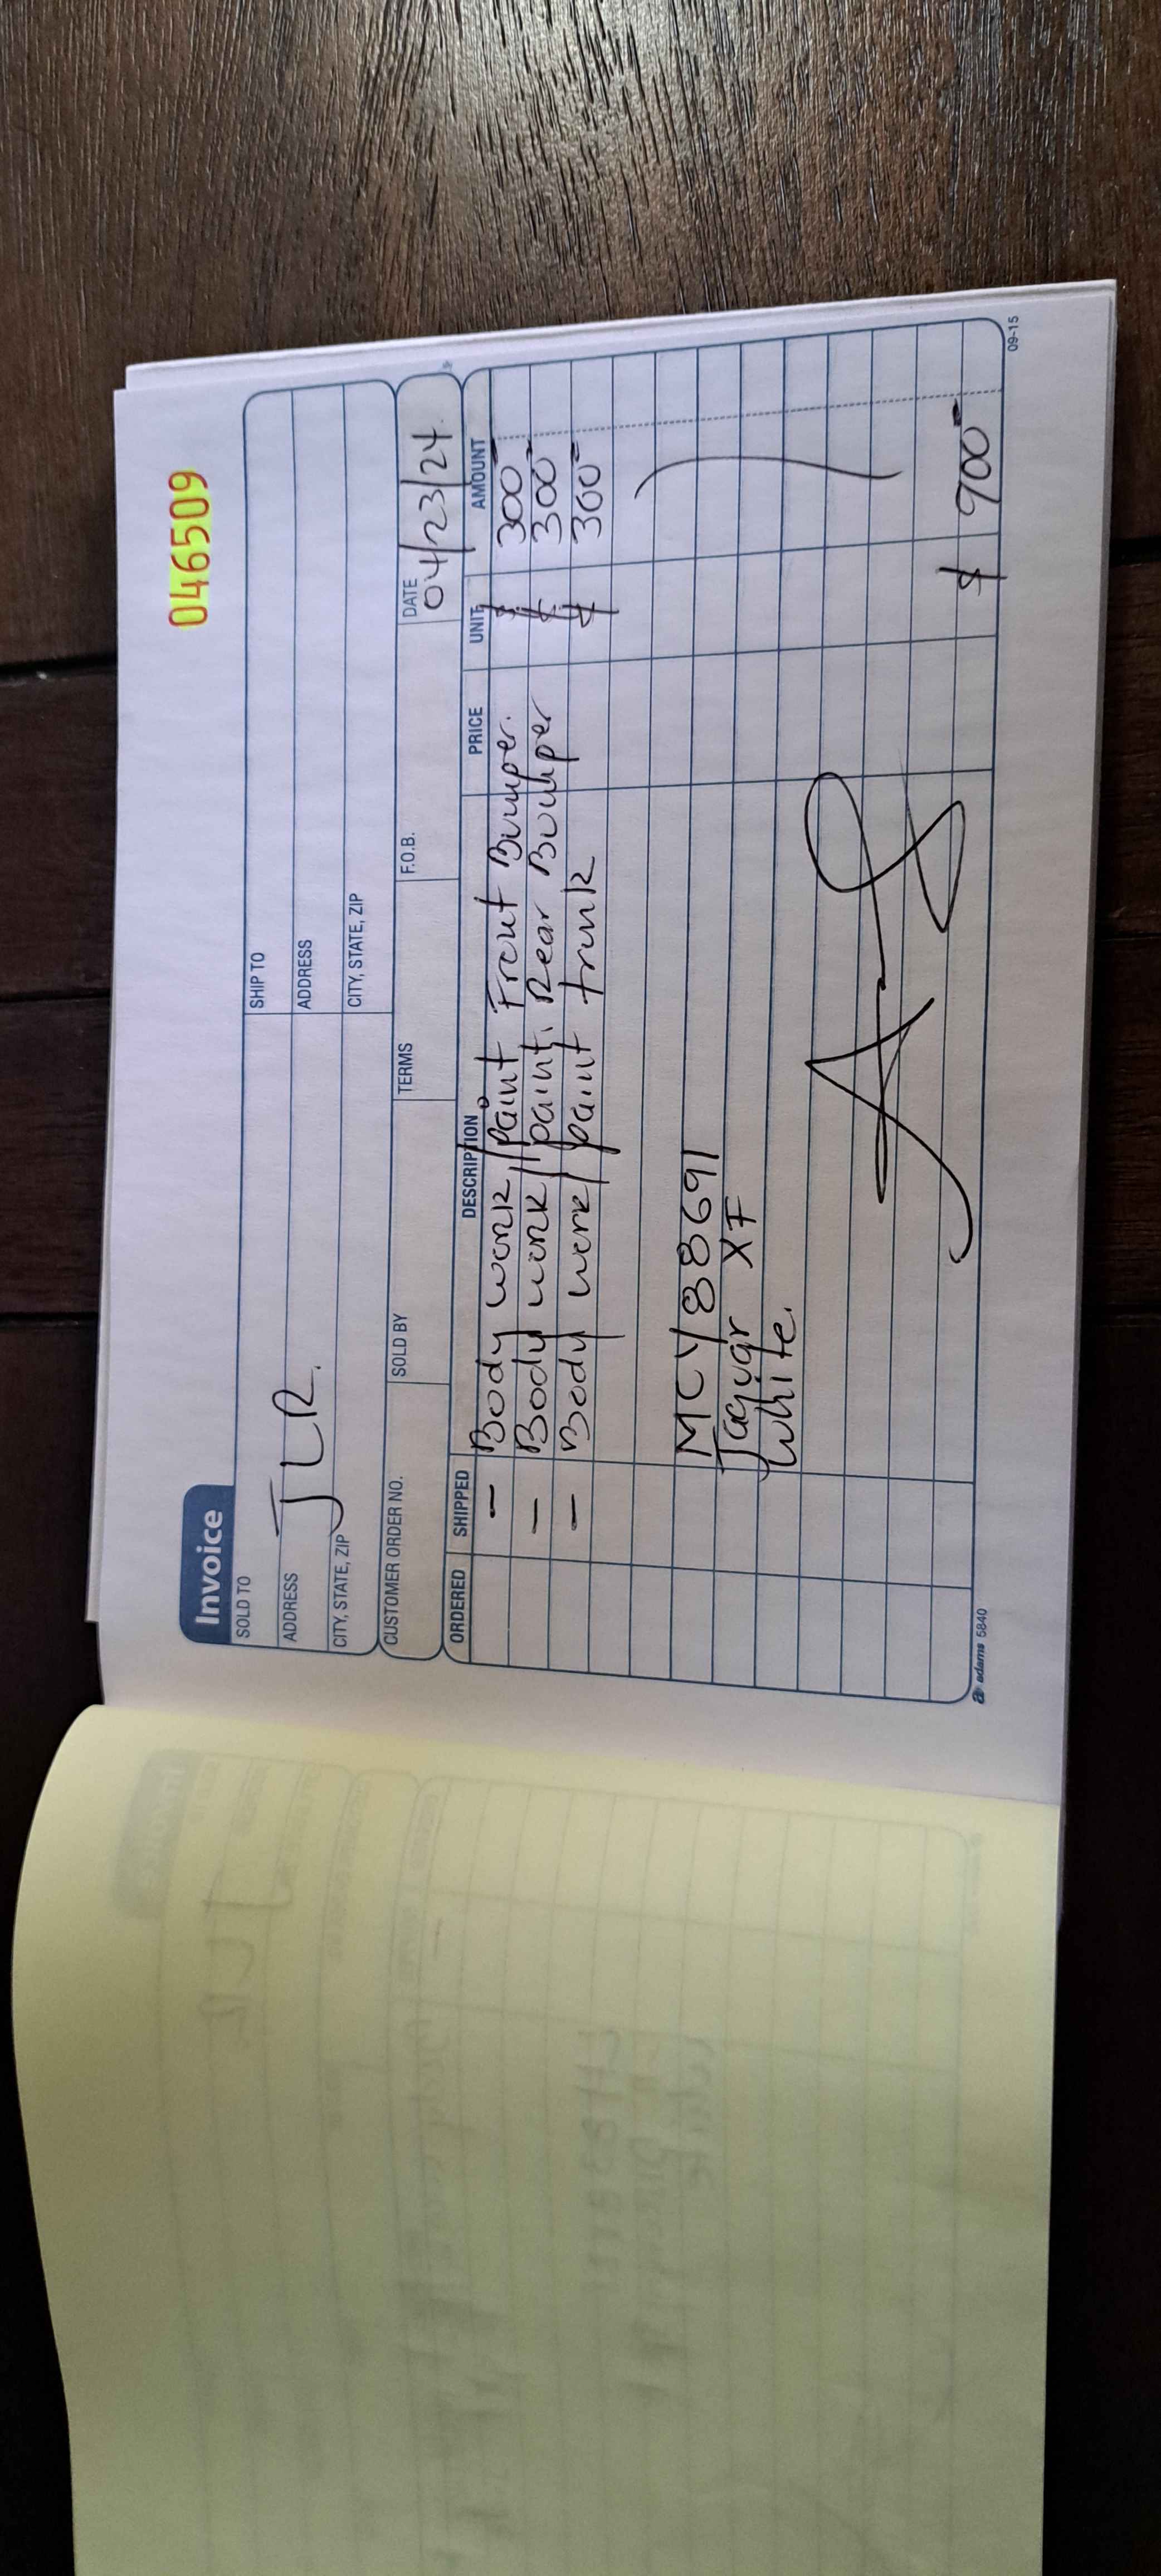 046509
Invoice
SOLD TO
SHIP TO
ADDRESS
JLR.
ADDRESS
CITY, STATE, ZIP
CITY, STATE, ZIP
CUSTOMER ORDER NO. SOLD BY TERMS F.O.B. DATE
04/23/24.
ORDERED SHIPPED DESCRIPTION PRICE UNIT AMOUNT
— Body work/paint Front Bumper. $ 300
— Body work/paint Rear Bumper $ 300
— Body work/paint trunk $ 300
MCY88691
Jaguar XF
White.
$ 900
a adams 5840
09-15